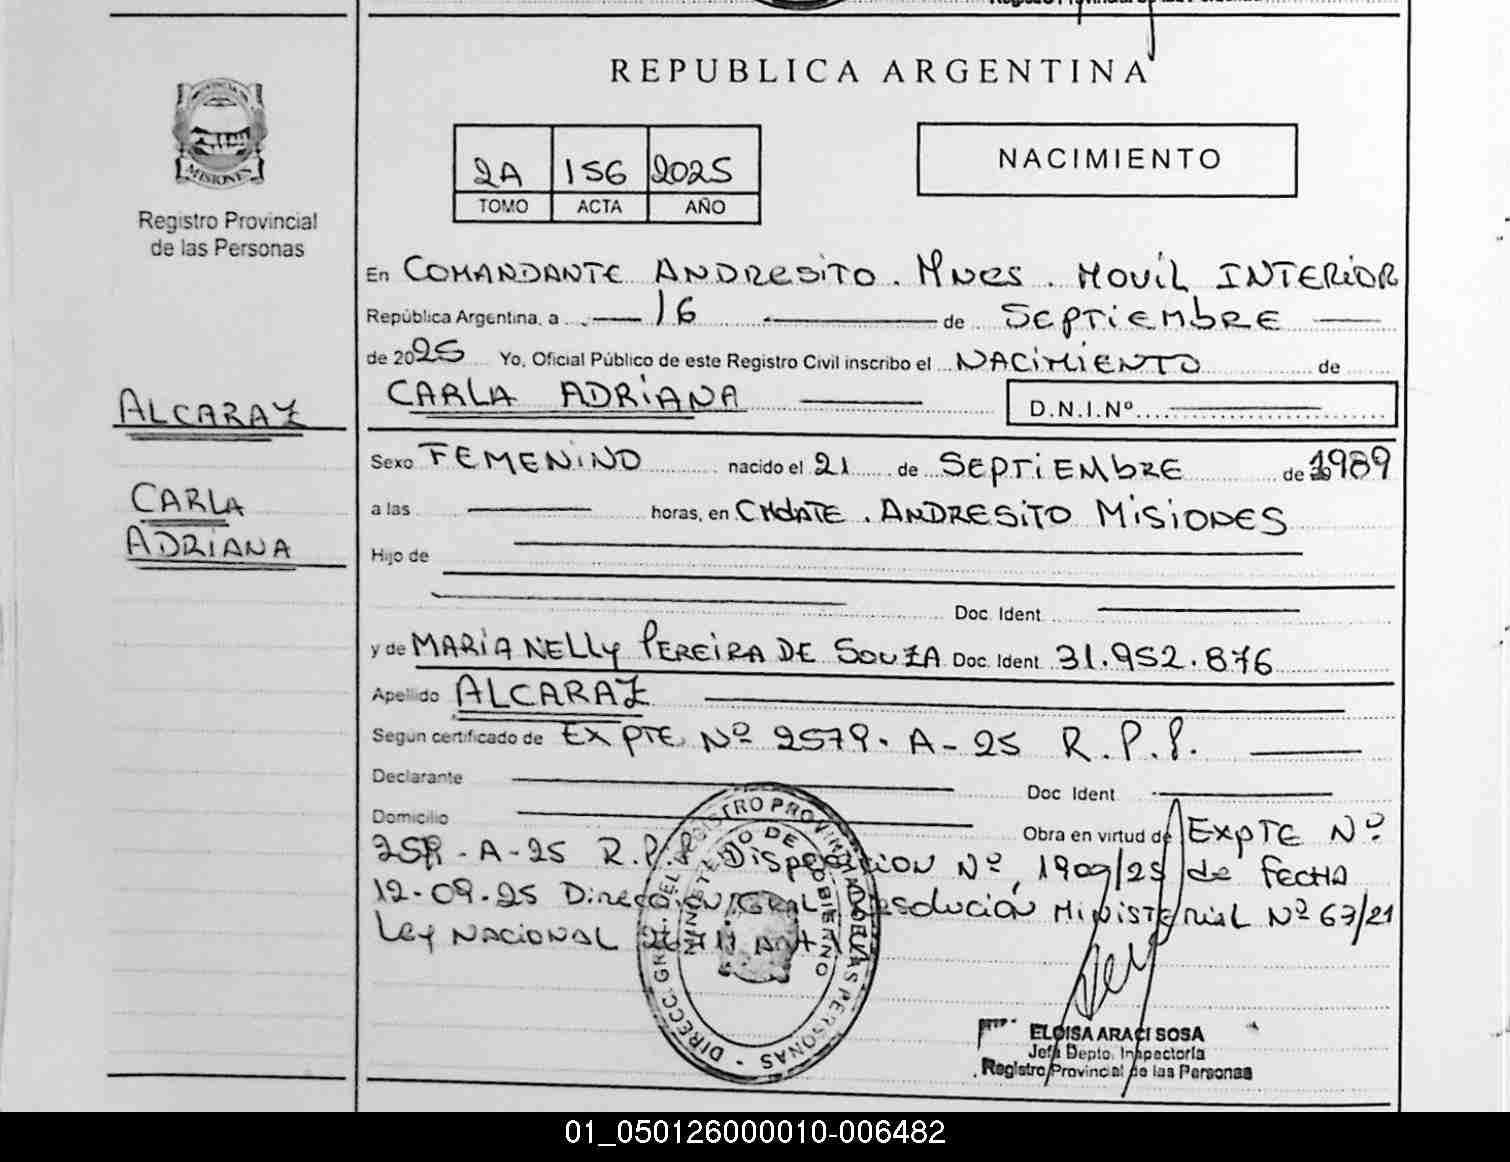 REPUBLICA ARGENTINA
MISIONES
Registro Provincial
de las Personas
2A 156 2025
TOMO ACTA AÑO
NACIMIENTO
En COMANDANTE ANDRESITO. Mnes. MOVIL INTERIOR
República Argentina, a 16 de SEPTIEMBRE
de 2025 Yo, Oficial Público de este Registro Civil inscribo el NACIMIENTO de
CARLA ADRIANA D.N.I.Nº
ALCARAZ
CARLA
ADRIANA
Sexo FEMENINO nacido el 21 de SEPTIEMBRE de 1989
a las horas, en CMDATE. ANDRESITO MISIONES
Hijo de
Doc. Ident.
y de MARIA NELLY PEREIRA DE SOUZA Doc. Ident. 31.952.876
Apellido ALCARAZ
Segun certificado de EXPTE Nº 2579-A-25 R.P.P.
Declarante Doc Ident
Domicilio Obra en virtud de EXPTE Nº
-A-25 R.P.P. Disposicion Nº 1909/25 de FECHA
12-09-25 Direccion Gral. Resolución Ministerial Nº 67/21
Ley NACIONAL
DIRECC. GRAL. DEL REGISTRO PROVINCIAL DE LAS PERSONAS
MINISTERIO DE GOBIERNO
ELOISA ARACI SOSA
Jefa Depto. Inspectoría
Registro Provincial de las Personas
01_050126000010-006482